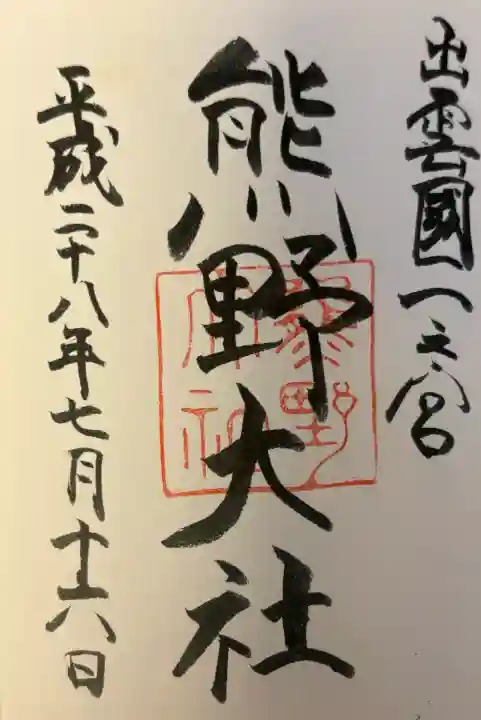 出雲國一之宮
熊野大社
熊野大社
平成二十八年七月十六日